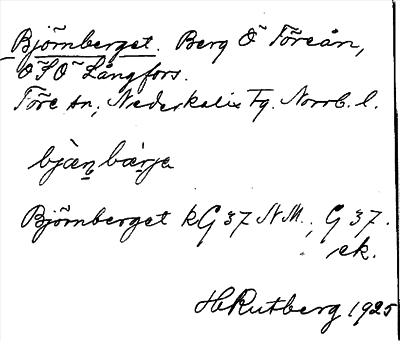 Björnberget. Berg Ö Töreån,
ÖSÖ Långfors.
Töre sn, Nederkalix Tg. Norrb. l.
bjän bärje
Björnberget kG 37 NM., G 37.
ek.
H Rutberg 1925